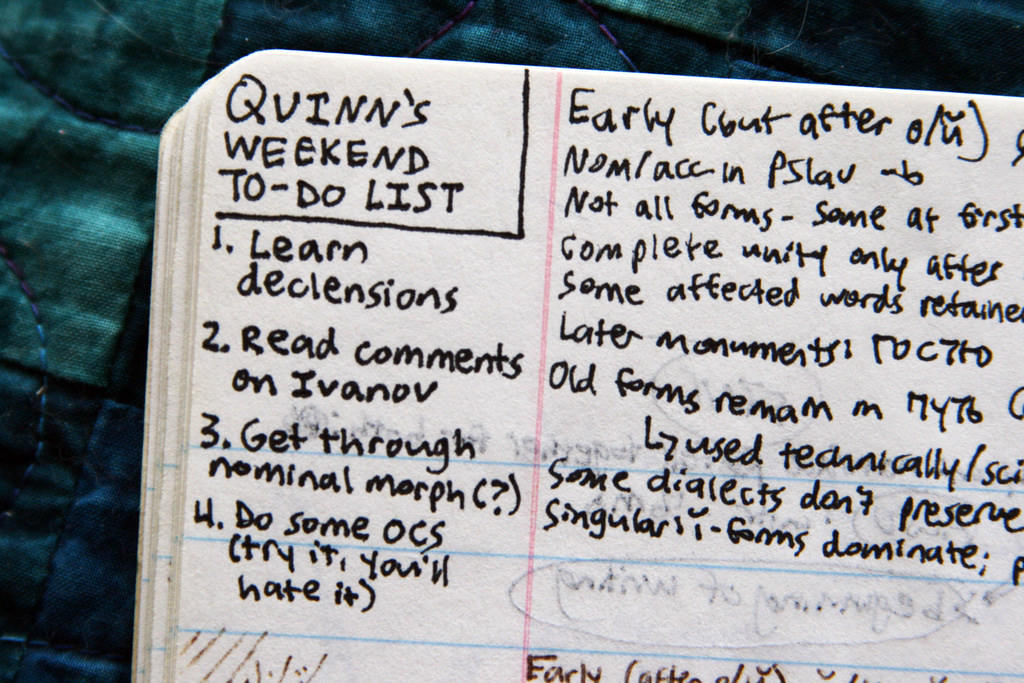 QUINN'S
WEEKEND
TO-DO LIST
1. Learn
declensions
2. Read comments
on Ivanov
3. Get through
nominal morph(?)
4. Do some OCS
(try it, you'll
hate it)
Early (but after o/ŭ)
Nom/acc in PSlav -ь
Not all forms - some at first
complete unity only after
Some affected words retained
Later monuments: гостю
Old forms remain in путь
↳used technically/sci
Some dialects don't preserve
Singular iĭ-forms dominate;
beginning of writing
Early (after o/ŭ)